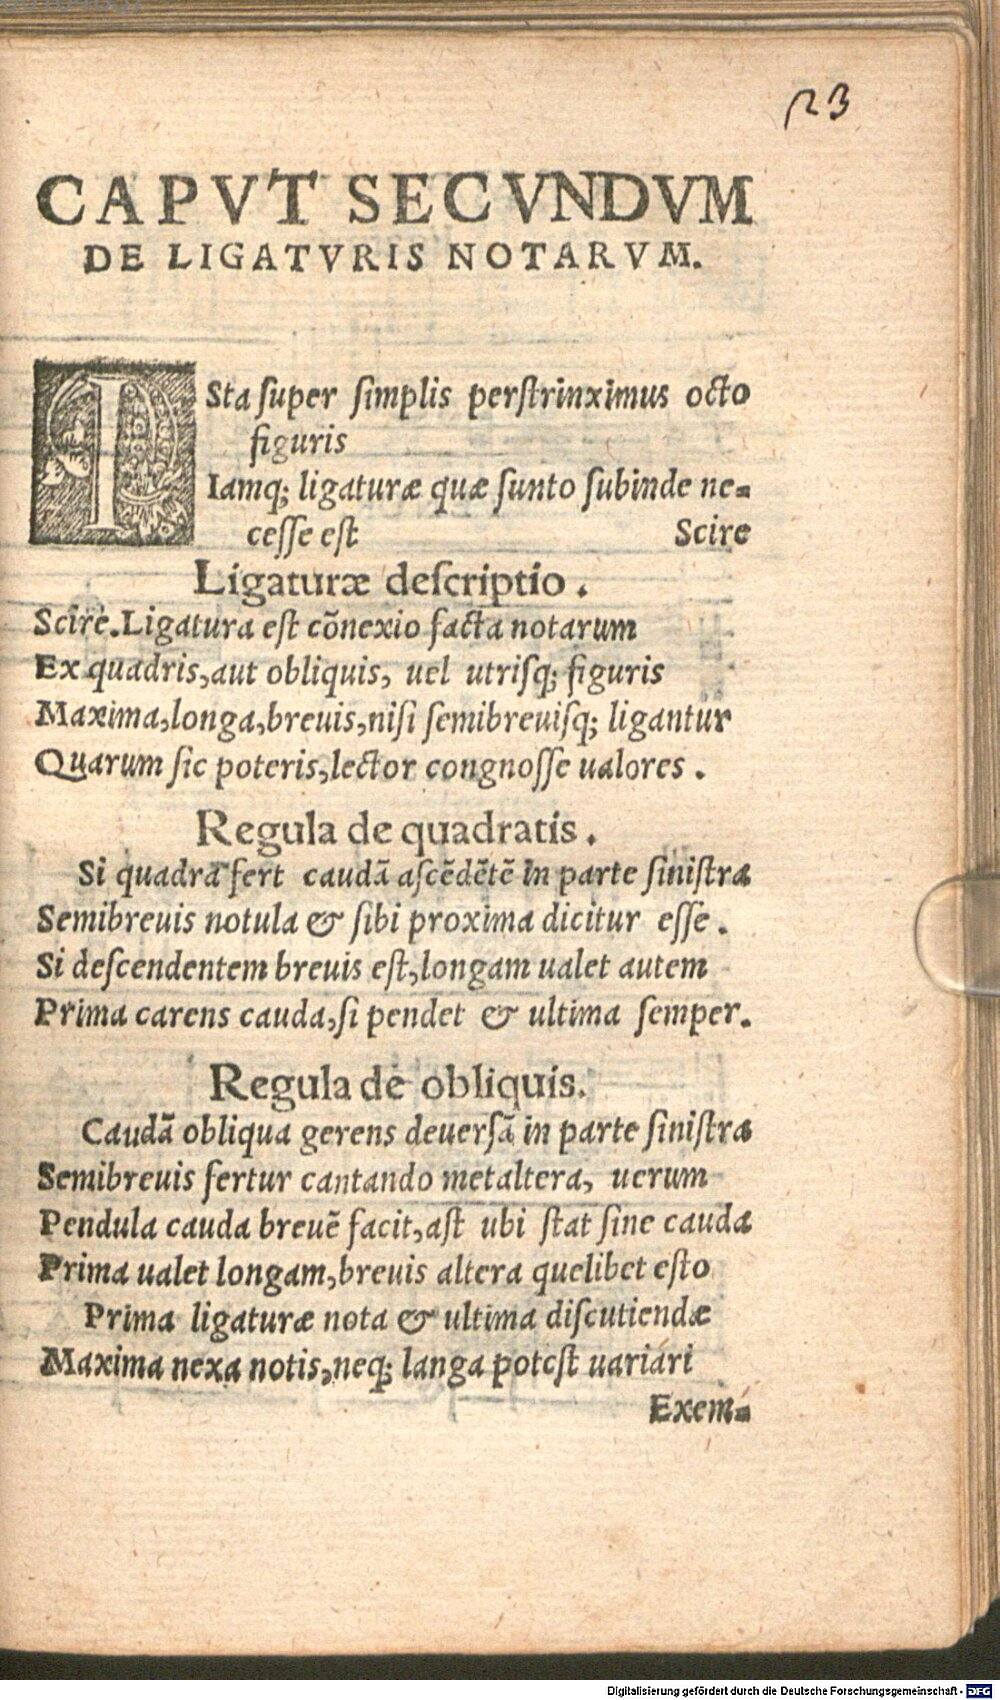 23
CAPVT SECVNDVM
DE LIGATVRIS NOTARVM.
ISta super simplis perstrinximus octo
figuris
Iamq; ligaturæ quæ sunto subinde ne=
cesse est Scire
Ligaturæ descriptio.
Scire. Ligatura est cõnexio facta notarum
Ex quadris, aut obliquis, uel utrisq; figuris
Maxima, longa, breuis, nisi semibreuisq; ligantur
Quarum sic poteris, lector congnosse ualores.
Regula de quadratis.
Si quadra fert caudã ascẽdẽtẽ in parte sinistra
Semibreuis notula & sibi proxima dicitur esse.
Si descendentem breuis est, longam ualet autem
Prima carens cauda, si pendet & ultima semper.
Regula de obliquis.
Caudã obliqua gerens deuersã in parte sinistra
Semibreuis fertur cantando metaltera, uerum
Pendula cauda breuẽ facit, ast ubi stat sine cauda
Prima ualet longam, breuis altera quelibet esto
Prima ligaturæ nota & ultima discutiendæ
Maxima nexa notis, neq; langa potest uariari
Exem=
Digitalisierung gefördert durch die Deutsche Forschungsgemeinschaft - DFG